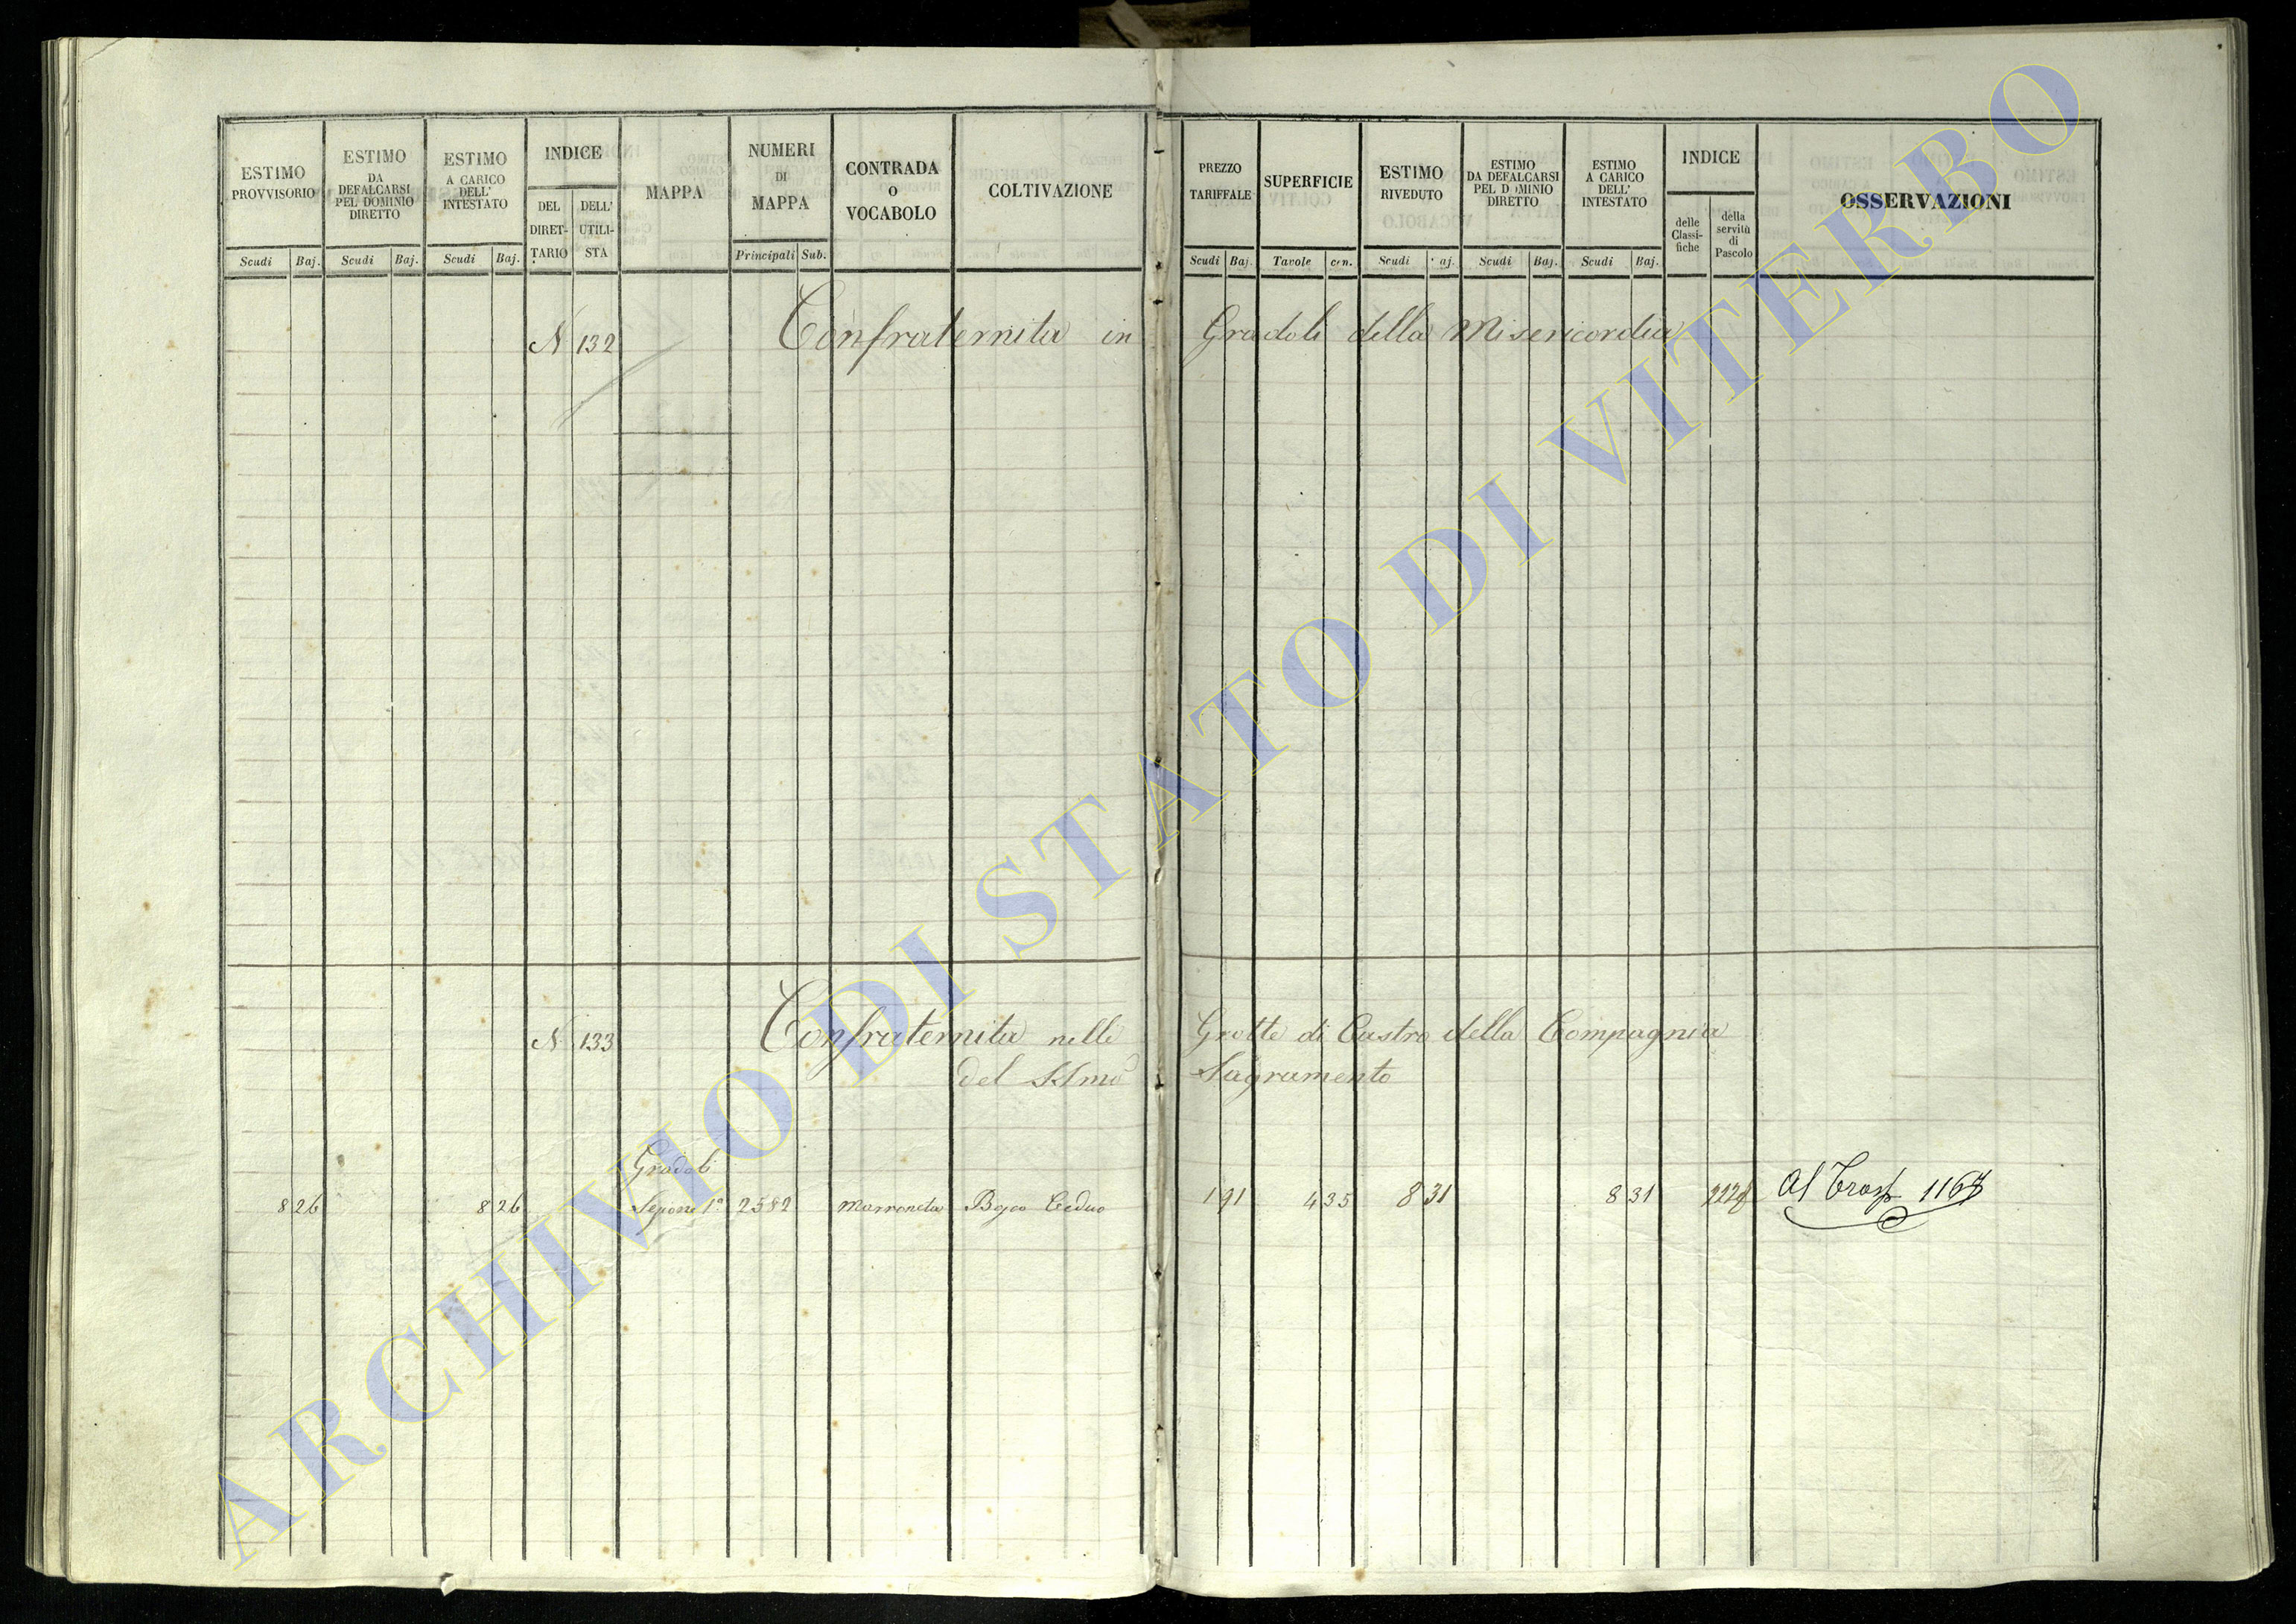 ESTIMO PROVVISORIO
ESTIMO DA DEFALCARSI PEL DOMINIO DIRETTO
ESTIMO A CARICO DELL' INTESTATO
INDICE
DEL DIRET-TARIO
DELL' UTILI-STA
MAPPA
NUMERI DI MAPPA
CONTRADA O VOCABOLO
COLTIVAZIONE
PREZZO TARIFFALE
SUPERFICIE
ESTIMO RIVEDUTO
ESTIMO DA DEFALCARSI PEL DOMINIO DIRETTO
ESTIMO A CARICO DELL' INTESTATO
INDICE
delle Classi-fiche
della servitù di Pascolo
OSSERVAZIONI
Scudi Baj. Scudi Baj. Scudi Baj. Principali Sub. Scudi Baj. Tavole cen. Scudi aj. Scudi Baj. Scudi Baj.
N 132 Confraternita in Gradoli della Misericordia
N 133 Confraternita nelle Grotte di Castro della Compagnia
del SSmo Sagramento
Gradoli
8 26 8 26 Sezione 1ª 2582 Marroneta Bosco Ceduo 1 91 4 35 8 31 8 31 Al Trasp
ARCHIVIO DI STATO DI VITERBO